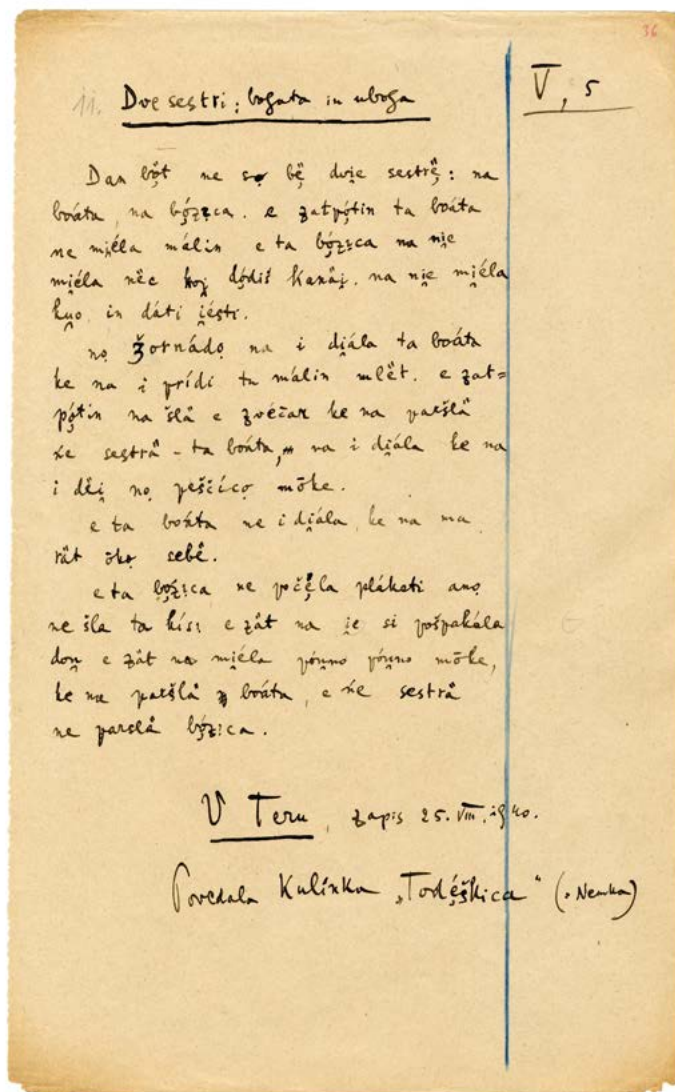 36
11. Dve sestri: bogata in uboga
V, 5
Dan bọ̈t ne sọ bẹ̈ dvi̯e sestrẹ̈: na
boáta, na bọ́ʒica. e zatpọ́tin ta boáta
ne mi̯éla málin e ta bọ́ʒica na ni̯e
mi̯éla nëc koj dọ́diš kanä̇i̯. na ni̯e mi̯éla
ku̯o in dáti i̯ésti.
nọ žornádọ na i di̯ála ta boáta
ke na i prídi tu málin mlë̇t. e zat=
pọ́tin na šlå e zvéčar ke na paršlå
ńe sestrå - ta boáta, na i di̯ála ke na
i dë̇i̯ nọ peščícọ mōke.
e ta boáta ne i di̯ála, ke na ma
rät ōkọ sebë̇.
e ta bọ́ʒica ne počë̇la plákati anọ
ne šla ta hísi e zät na i̯e si pošpakála
don e zät na mi̯éla póu̯no póu̯no mōke,
ke na paršlå boáta, e ńe sestrå
ne parslå bọ́ʒica.
V Teru, zapis 25. VIII. 1940.
Povedala Kulínka „Todéškica“ (= Nemka)